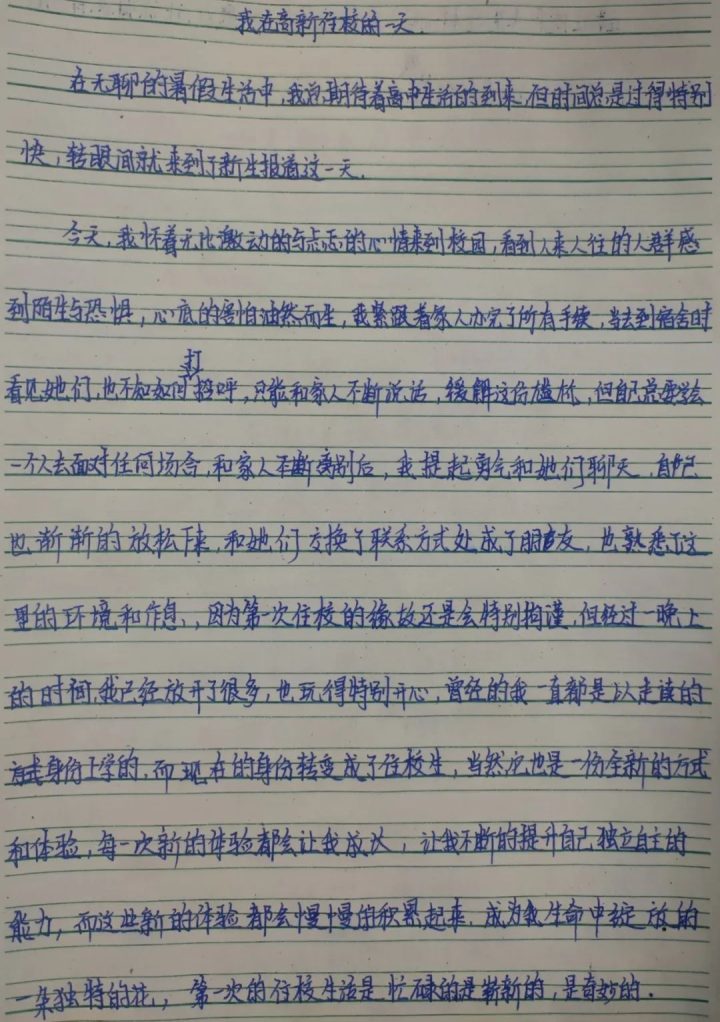 我在高新住校的一天.
在无聊的暑假生活中,我总期待着高中生活的到来.但时间总是过得特别
快,转眼间就来到了新生报道这一天.
今天,我怀着无比激动的与忐忑的心情来到校园,看到人来人往的人群感
到陌生与恐惧,心底的害怕油然而生,我紧跟着家人办完了所有手续,当去到宿舍时
看见她们,也不知如何打招呼,只能和家人不断说话,缓解这份尴尬,但自己总要学会
一个人去面对任何场合,和家人离别后,我提起勇气和她们聊天.自己
也渐渐的放松下来,和她们交换了联系方式处成了朋友,也熟悉了这
里的环境和作息,因为第一次住校的缘故还是会特别拘谨,但经过一晚上
的时间,我已经放开了很多,也玩得特别开心,曾经的我一直都是以走读的
身份上学的,而现在的身份转变成了住校生,当然这也是一份全新的方式
和体验,每一次新的体验都会让我成长,让我不断的提升自己独立自主的
能力,而这些新的体验都会慢慢的积累起来.成为我生命中绽放的
一朵独特的花,第一次的住校生活是忙碌的是崭新的,是奇妙的.